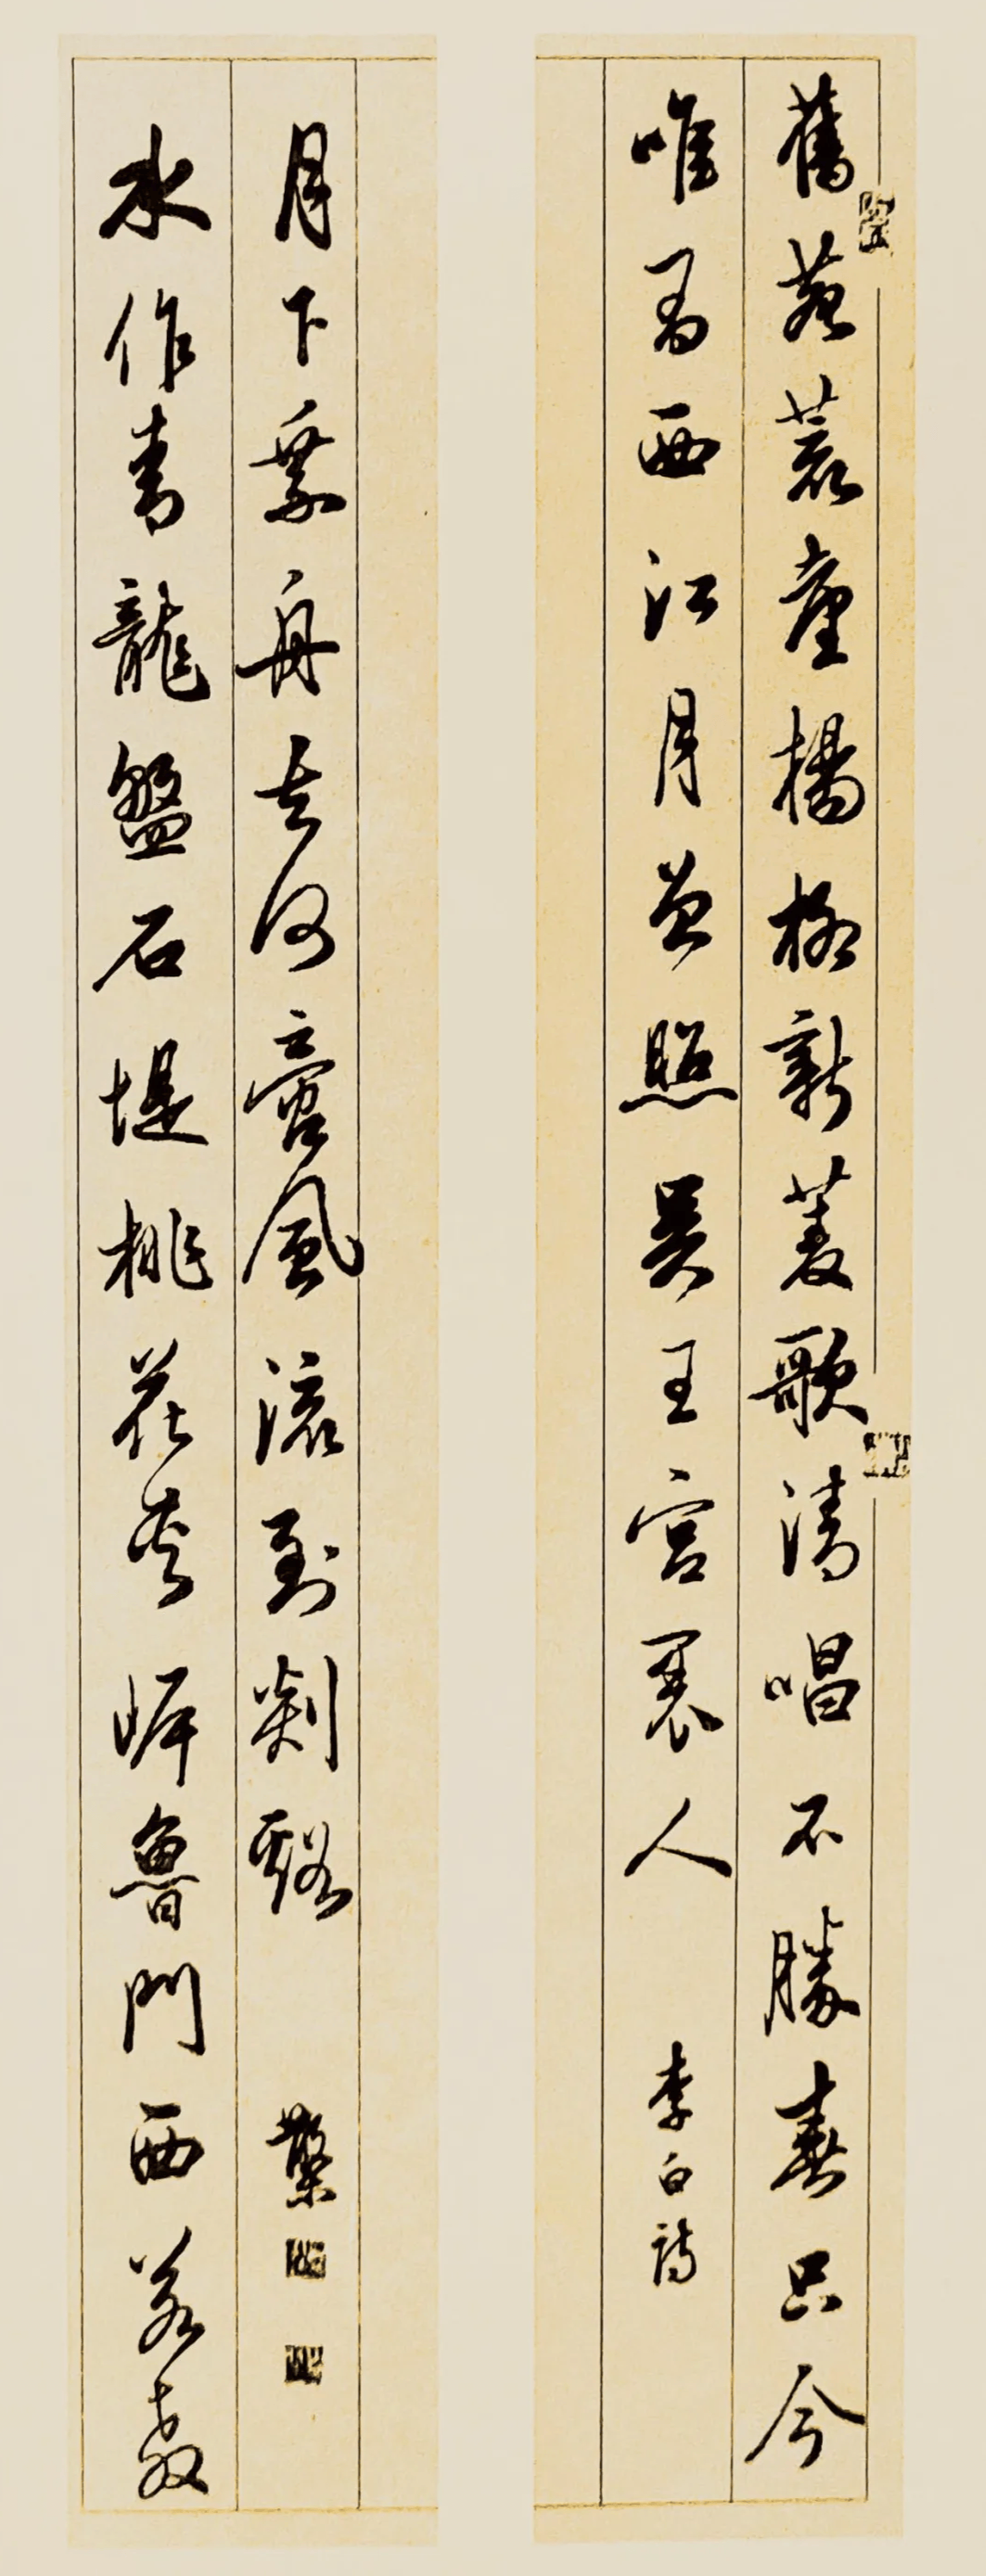 舊苑荒臺楊柳新菱歌清唱不勝春只今
唯有西江月曾照吳王宮裏人 李白詩
水作青龍盤石堤桃花夾岸魯門西若教
月下乘舟去何啻風流到剡谿